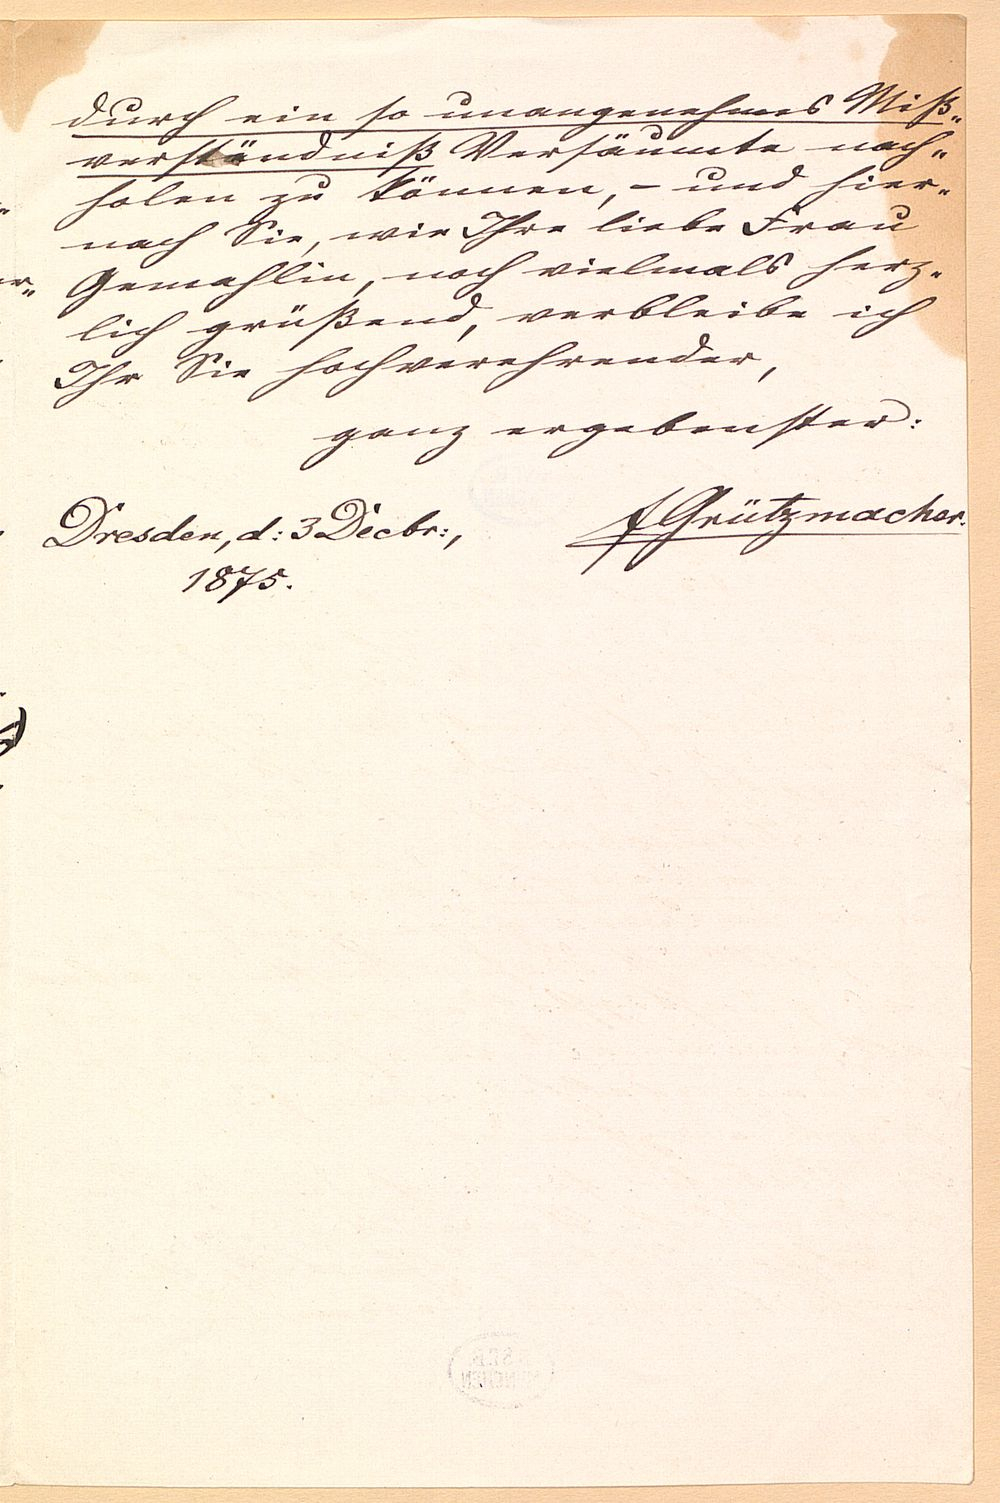 durch ein so unangenehmes Miß-
verständniß Versäumte nach-
holen zu können, – und hier-
nach Sie, wie Ihre liebe Frau
Gemahlin, noch vielmals herz-
lich grüßend, verbleibe ich
Ihr Sie hochverehrender,
ganz ergebenster:
Dresden, d: 3 Decbr:,
1875.
FGrützmacher.